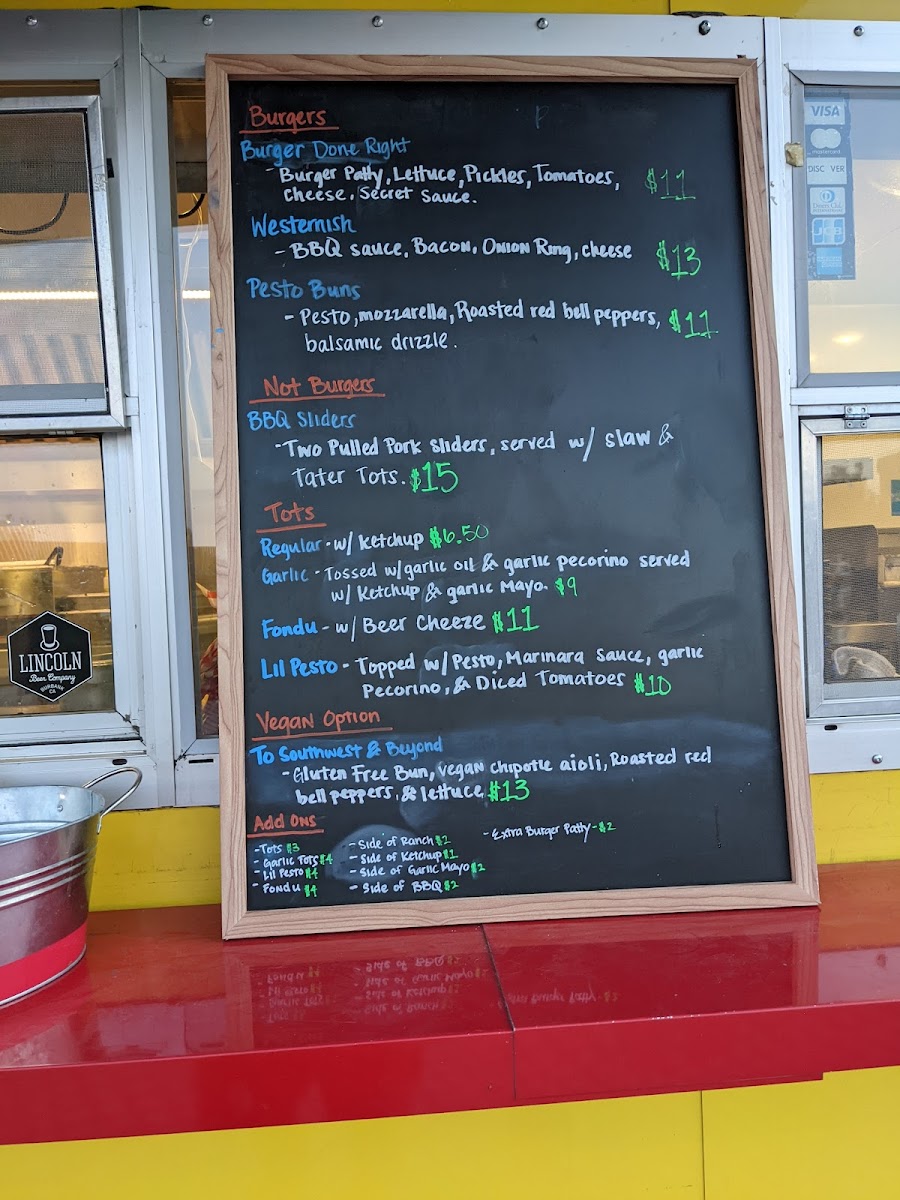 Burgers
Burger Done Right
- Burger Patty, Lettuce, Pickles, Tomatoes, $11
Cheese, Secret Sauce.
Westernish
- BBQ sauce, Bacon, Onion Ring, cheese $13
Pesto Buns
- Pesto, mozzarella, Roasted red bell peppers, $11
balsamic drizzle.
Not Burgers
BBQ Sliders
- Two Pulled Pork Sliders, served w/ slaw &
Tater Tots. $15
Tots
Regular - w/ Ketchup $6.50
Garlic - Tossed w/garlic oil & garlic pecorino served
w/ Ketchup & garlic Mayo. $9
Fondu - w/ Beer Cheeze $11
Lil Pesto - Topped w/Pesto, Marinara Sauce, garlic
Pecorino, & Diced Tomatoes $10
Vegan Option
To Southwest & Beyond
- Gluten Free Bun, vegan chipotle aioli, Roasted red
bell peppers, & lettuce. $13
Add Ons
- Tots $3
- Garlic Tots $4
- Lil Pesto $4
- Fondu $4
- Side of Ranch $2
- Side of Ketchup $1
- Side of Garlic Mayo $2
- Side of BBQ $2
- Extra Burger Patty - $2
LINCOLN
Beer Company
BURBANK
CA
VISA
mastercard
DISCOVER
Diners Club
JCB